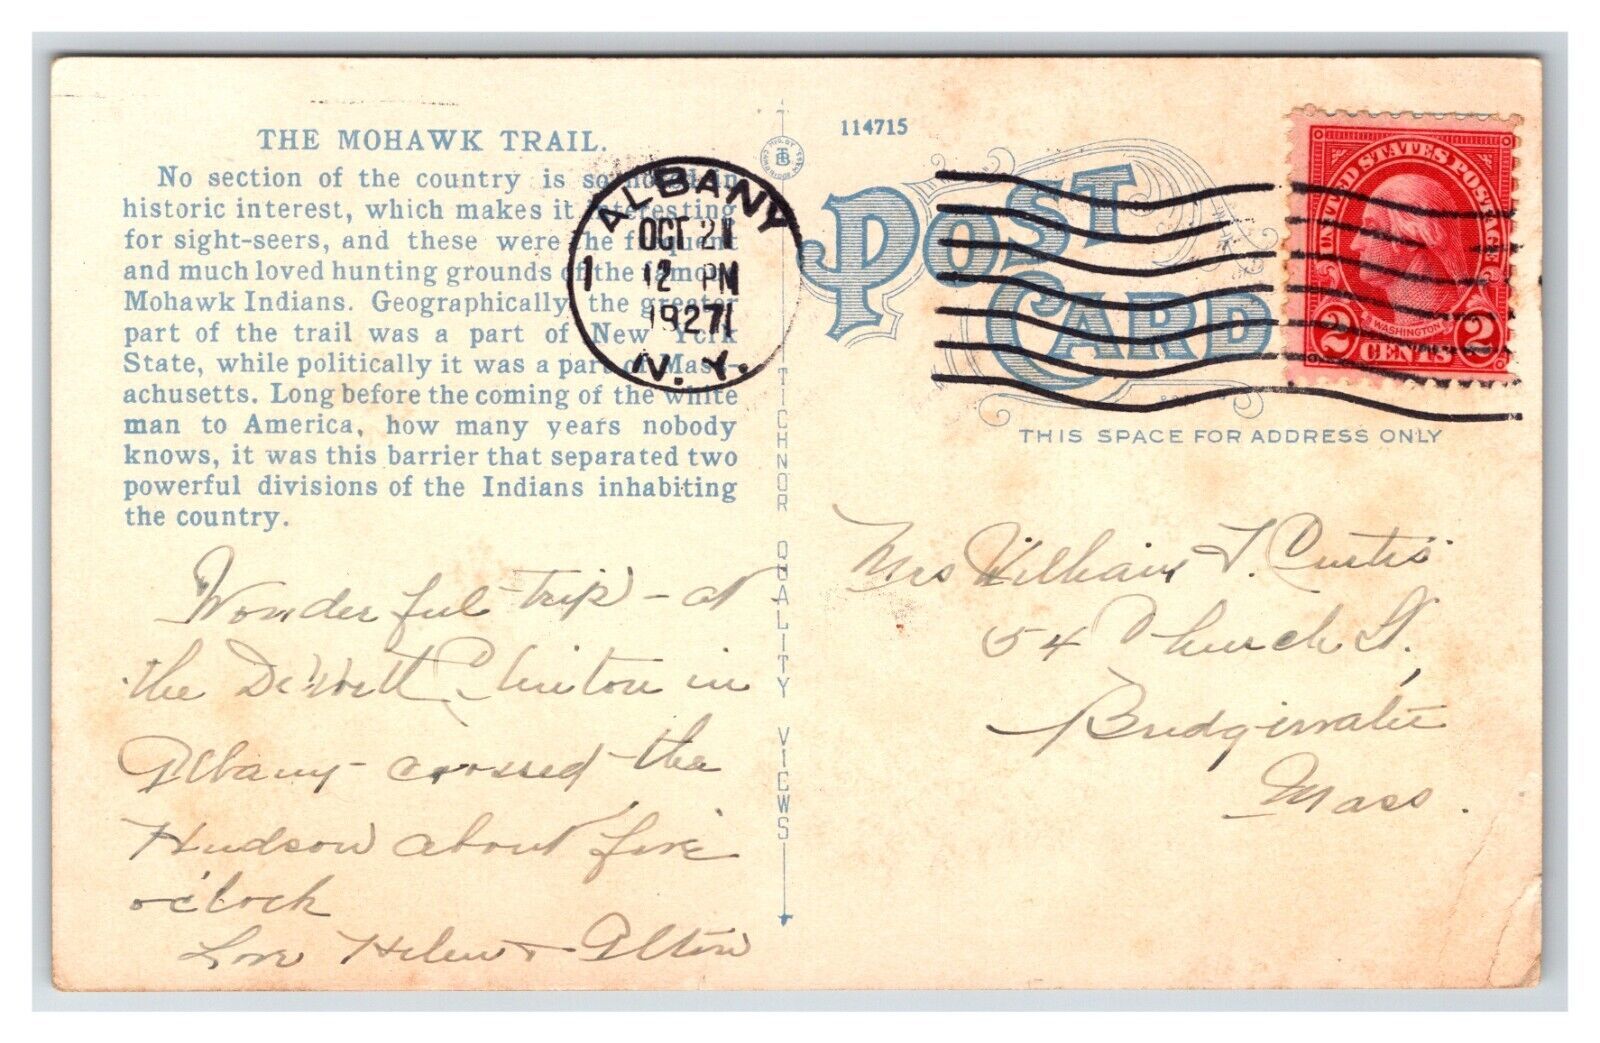 THE MOHAWK TRAIL.
No section of the country is so noted in
historic interest, which makes it interesting
for sight-seers, and these were the frequent
and much loved hunting grounds of the famous
Mohawk Indians. Geographically, the greater
part of the trail was a part of New York
State, while politically it was a part of Mass-
achusetts. Long before the coming of the white
man to America, how many years nobody
knows, it was this barrier that separated two
powerful divisions of the Indians inhabiting
the country.
Wonderful trip - at
the De Witt Clinton in
Albany - crossed the
Hudson about five
o'clock
Love Helen + Alton
ALBANY
OCT 21
12 PM
1927
N.Y.
1
TICHNOR QUALITY VIEWS
114715
POST CARD
UNITED STATES POSTAGE
WASHINGTON
2 CENTS 2
THIS SPACE FOR ADDRESS ONLY
Mrs William T. Curtis
54 Church St.,
Bridgewater
Mass.